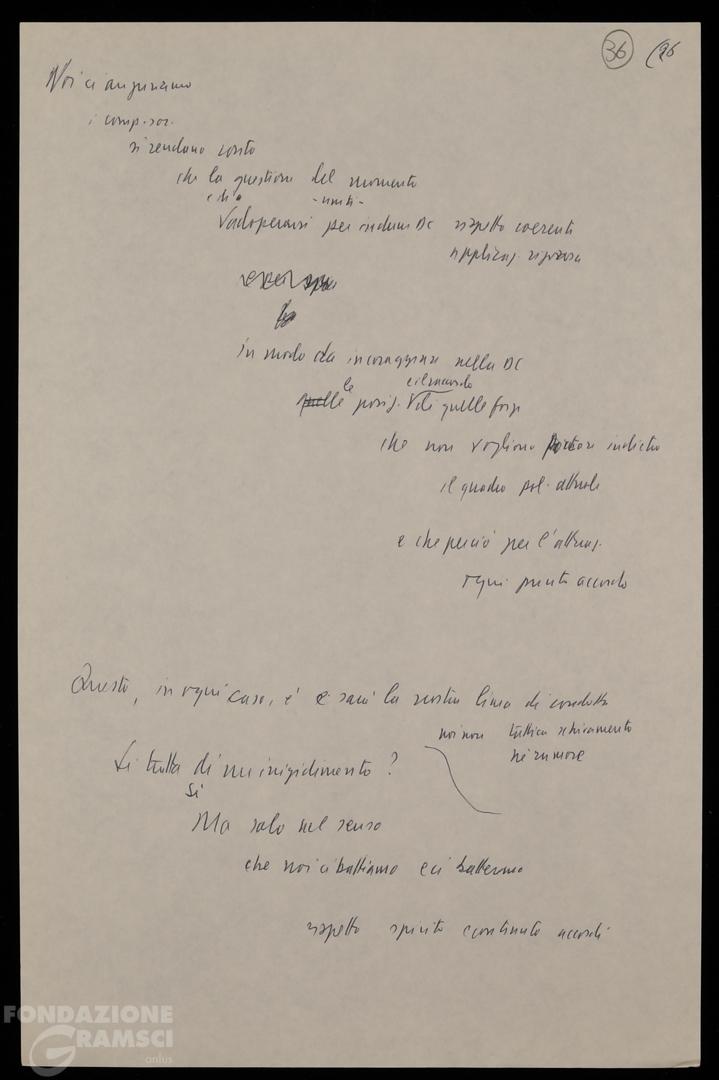 36 (36
Noi ci auguriamo
i comp. soc.
si rendano conto
che la questione del momento
è di - uniti -
adoperarsi per indurre DC rispetto coerente
applicaz. rigorosa
in modo da incoraggiare nella DC
le e il ruolo
quelle posiz. di quelle forze
che non vogliono portare indietro
il quadro pol. attuale
e che perciò per l'attuaz.
ogni punto accordo
Questa, in ogni caso, è e sarà la nostra linea di condotta
noi non tattica schieramento
né rumore
Si tratta di un irrigidimento?
Sì
Ma solo nel senso
che noi ci battiamo e ci batteremo
rispetto spirito e contenuto accordi
FONDAZIONE
GRAMSCI
onlus